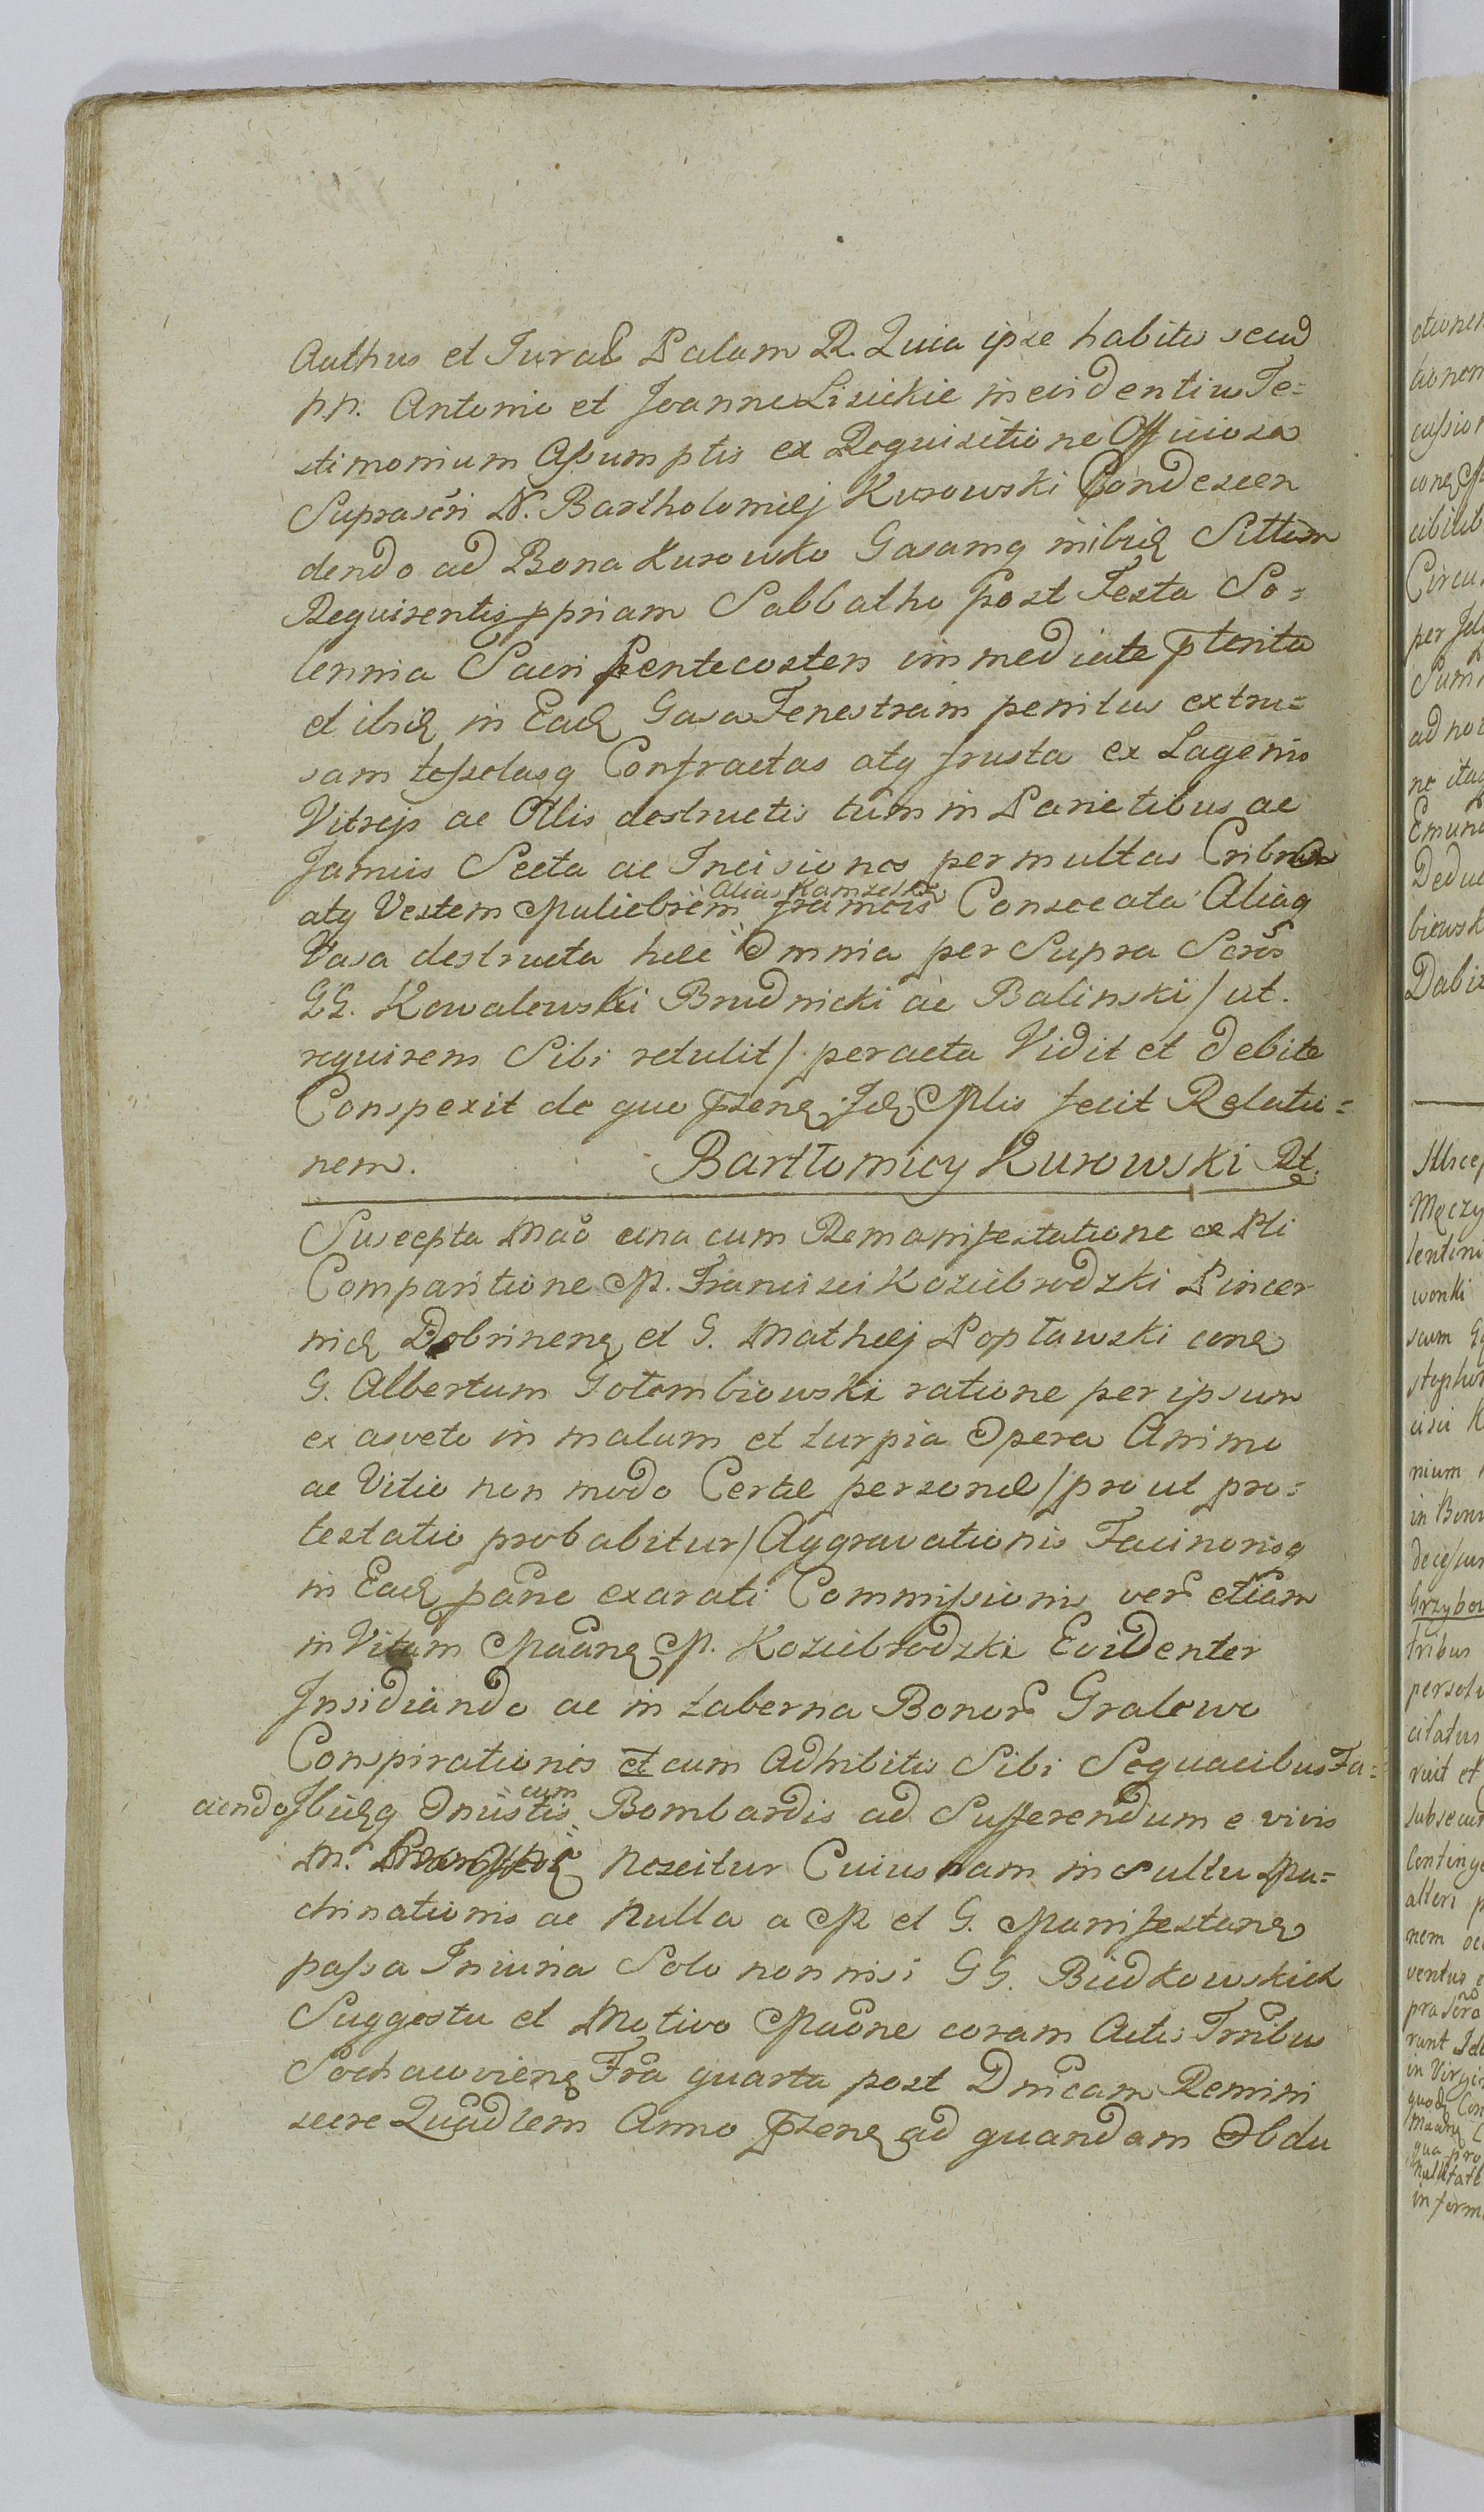 Authus et Jural Palam R. Quia ipse habitis secud
pp. Antonio et Joanne Lisickie in evidentius Te=
stimonium Assumptis ex Requisitione Officiosa
Suprascri N. Bartholomęj Kurowski Condescen
dendo ad Bona Kurowko Casamq inibiq Sittam
Requirentis ppriam Sabbatho post Festa So=
lennia Sacri Pentecosten immediate pterita
et ibiq in Eadq Casa Fenestram penitus extru=
sam tesselasq Confractas atq frusta ex Lagenis
Vitreis ac Ollis destructis tum in Parietibus ac
Januis Secta ac Incisiones permultas
atq Vestem Muliebrem Alias Kamzelkę Consecata Aliaq
Vasa destructa hęc Omnia per Supra Scros
GG. Kowalewski Brudnicki ac Balinski / ut
requirens Sibi retulit / peracta Vidit et debite
Conspexit de quo pzenq Idq Mlis fecit Relatio=
nem. Bartłomiey Kurowski Rt.
Suscepta Mao una cum Remanifestatione ex Pli
Comparitione M. Francisci Koziebrodzki Pincer
nię Dobrinenq et G. Mathęj Popławski conq
G. Albertum Gołembiowski ratione per ipsum
ex asveto in malum et turpia Opera Animo
ac Vitio non modo Certę personę / prout pro=
testatio probabitur / Aggravationis Facinorisq
in Eadq pane exarati Commissionis ver etiam
in Vitam Maanq M. Koziebrodzki Evidenter
Insidiando ac in taberna Bonor Gralewo
Conspirationes et cum Adhibitis Sibi Sequacibus Fa=
ciendo Ibiqq Onustis cum Bombardis ad Sufferendum e vivis
M. Noscitur Cuiusnam insultu Ma=
chinationis ac Nulla a M et G. Manifestanq
passa Iniuria Solo nonnisi GG. Budkowskich
Suggestu et Motivo Maone coram Actis Trribus
Sochaczovienq Fra quarta post Dnicam Remini
scere Quadlem Anno pzenq ad quandam Obdu